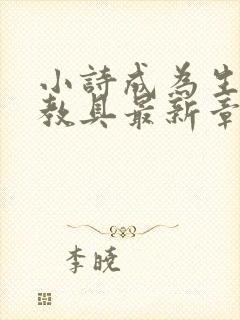 小詩成為生
教具最新章
李曉